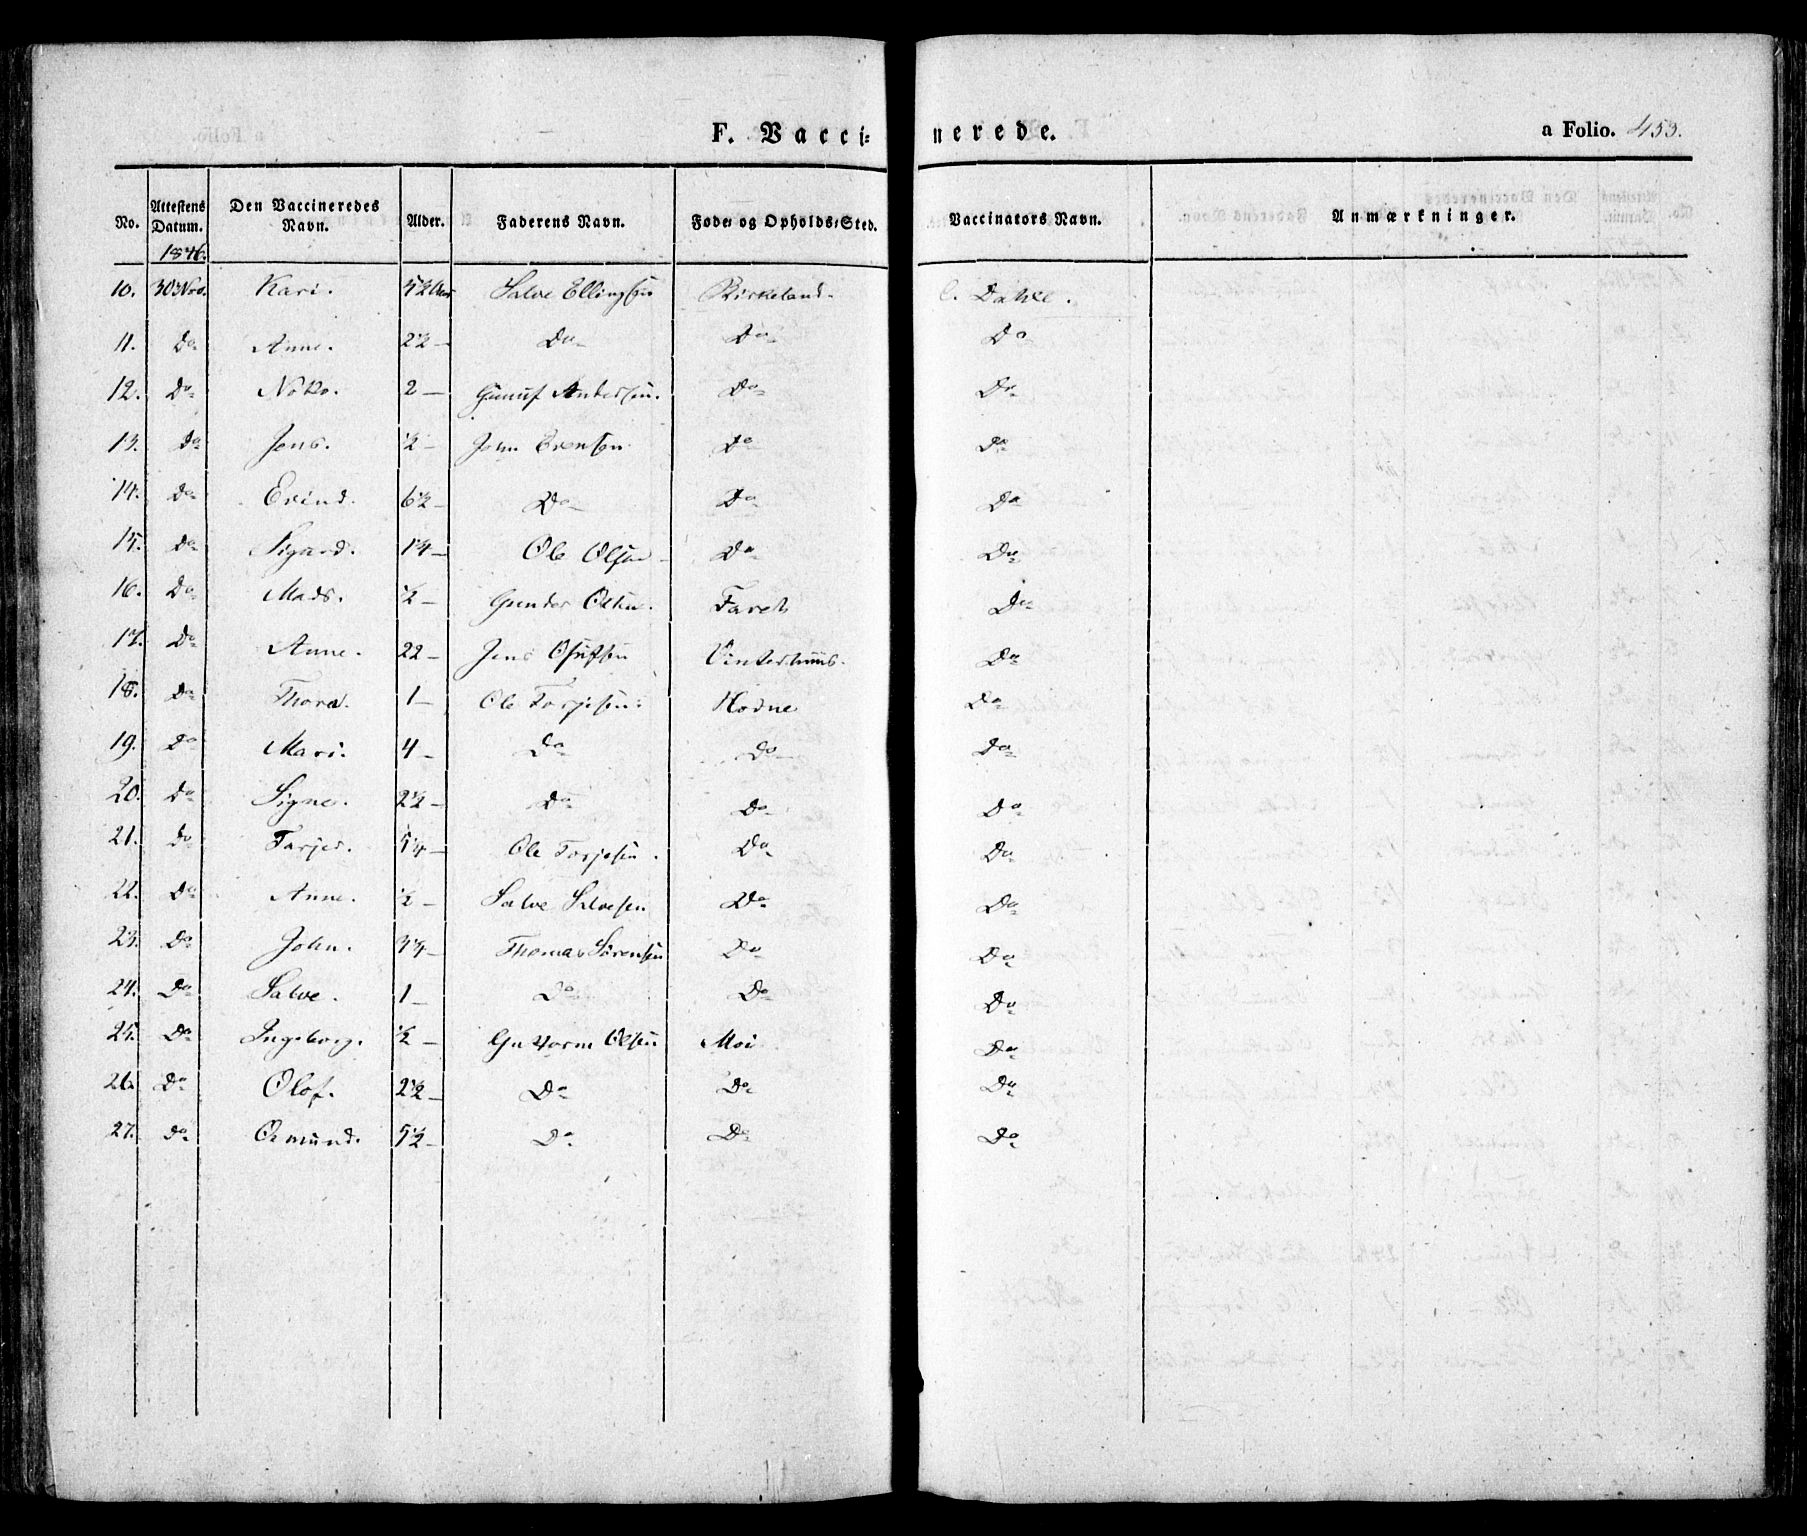 F. Vaccinerede. a Folio. 453.
No. Attestens Datum. Den Vaccineredes Navn. Alder. Faderens Navn. Føde- og Opholds-Sted. Vaccinators Navn. Anmærkninger.
1846.
10. 30 Nov. Kari. Salve Ellingsen Birkeland. C. Dahl.
11. Do Anne. 2½ Do Do Do
12. Do 2 Gunuf Andersen. Do Do
13. Do Jens. ½ John Do Do
14. Do Evind. 6½ Do Do Do
15. Do Sigurd. Ole Olsen Do Do
16. Do Mads. ½ Gunder Faret Do
17. Do Anne. 22 Jens Vinterhuus. Do
18. Do Thora. 1 Ole Torjesen. Hodne Do
19. Do Mari. 4 Do Do Do
20. Do Signe. 2½ Do Do Do
21. Do Tarjer. Ole Torjesen. Do Do
22. Do Anne. ½ Salve Salvesen Do Do
23. Do John. Thomas Sørensen Do Do
24. Do Salve. 1 Do Do Do
25. Do Ingeborg. ½ Guttorm Olsen Moi Do
26. Do Olof. 2½ Do Do Do
27. Do Omund. 5½ Do Do Do